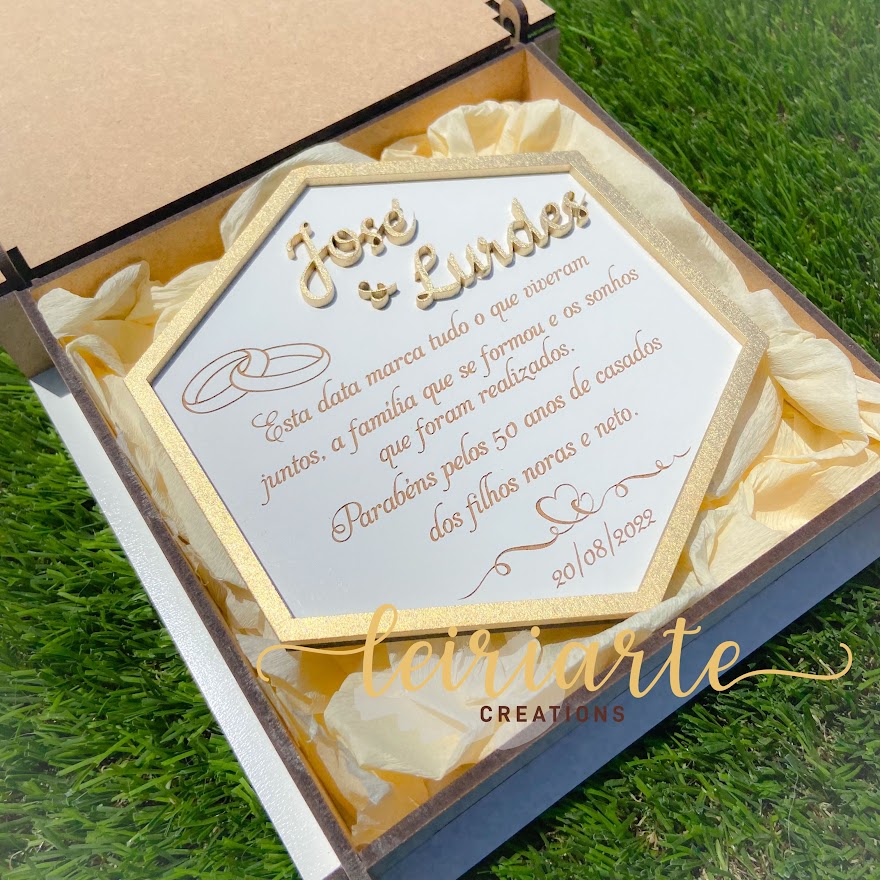 José
& Lurdes
Esta data marca tudo o que viveram
juntos, a família que se formou e os sonhos
que foram realizados.
Parabéns pelos 50 anos de casados
dos filhos noras e neto.
20/08/2022
leiriarte
CREATIONS